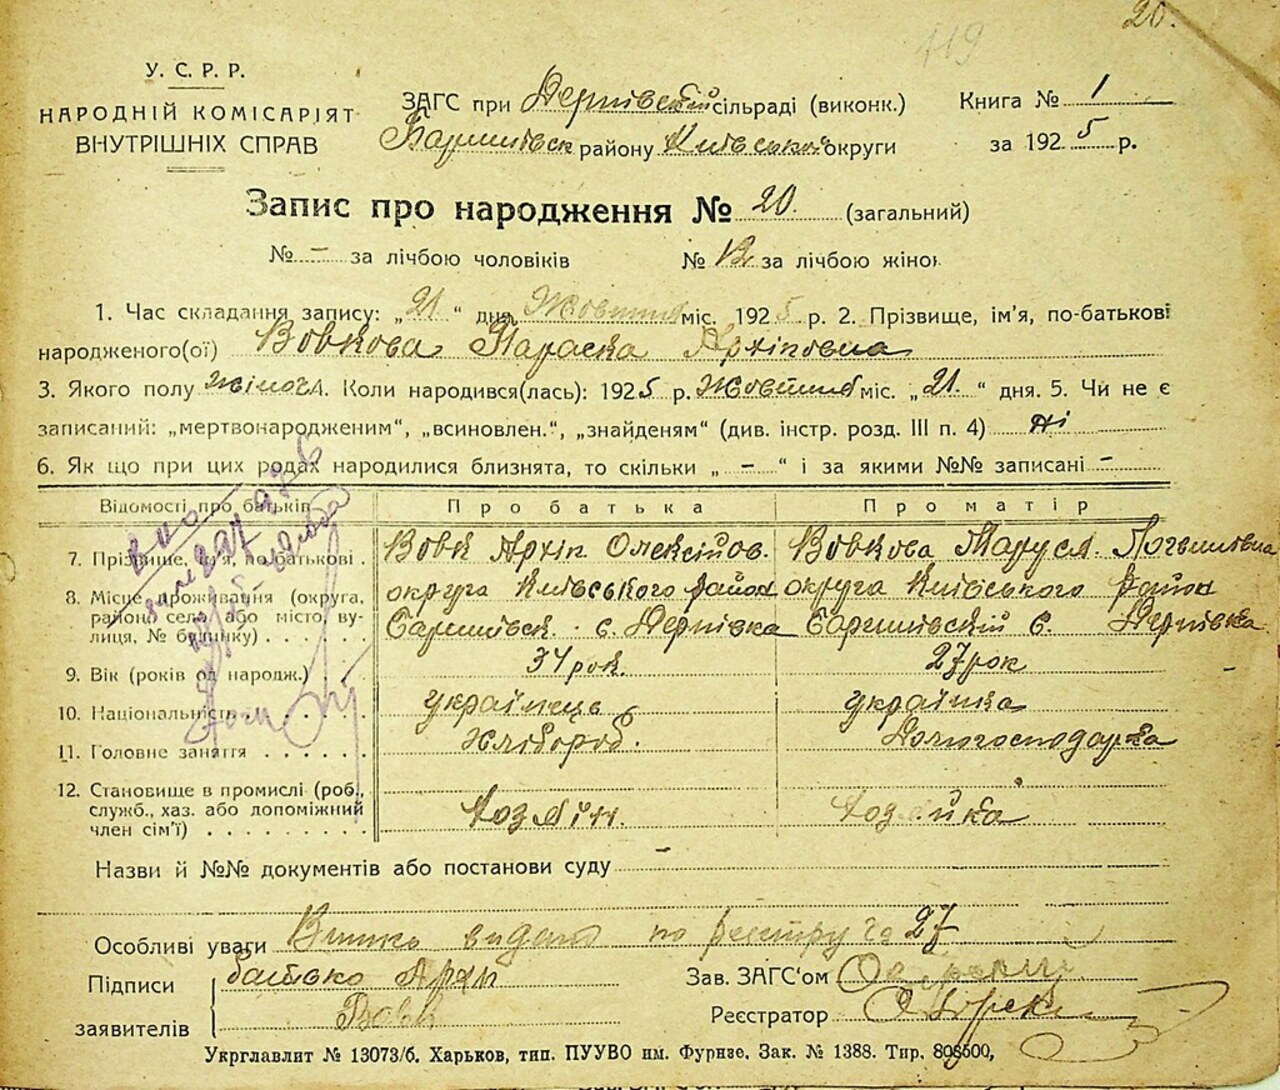 20.
119
У. С. Р. Р.
НАРОДНІЙ КОМІСАРІЯТ
ВНУТРІШНІХ СПРАВ
ЗАГС при Дернівській сільраді (виконк.)
Баришівськ району Київської округи
Книга № 1
за 1925 р.
Запис про народження № 20. (загальний)
№ – за лічбою чоловіків № 12 за лічбою жінок
1. Час складання запису: „21“ дня Жовтня міс. 1925 р. 2. Прізвище, ім'я, по-батькові
народженого(ої) Вовкова Параска Архіповна
3. Якого полу жіноч. 4. Коли народився(лась): 1925 р. Жовтня міс. „21.“ дня. 5. Чи не є
записаний: „мертвонародженим“, „всиновлен.“, „знайденям“ (див. інстр. розд. III п. 4) ні
6. Як що при цих родах народилися близнята, то скільки „ – “ і за якими №№ записані –
Відомості про батьків Про батька Про матір
7. Прізвище, ім'я, по-батькові . Вовк Архіп Олексійов. Вовкова Маруся
8. Місце проживання (округа, округа Київського район округа Київського район
район, село або місто, ву- Баришівськ. с. Дернівка Баришівскій с. Дернівка
лиця, № будинку) . . . . . .
9. Вік (років од народж.) . . 34 рок. 27 рок
10. Національність . . . . . . українець українка
11. Головне заняття . . . . . . Хлібороб. Домогосподарка
12. Становище в промислі (роб.,
служб., хаз. або допоміжний Хозяїн. Хозяйка
член сім'ї) . . . . . . . . .
Назви й №№ документів або постанови суду –
Особливі уваги Витяг видат по реєстру за 27
Підписи батько Архіп Зав. ЗАГС'ом
заявителів Вовк Реєстратор
Укрглавлит № 13073/б. Харьков, тип. ПУУВО им. Фурнзе. Зак. № 1388. Тир. 808500,